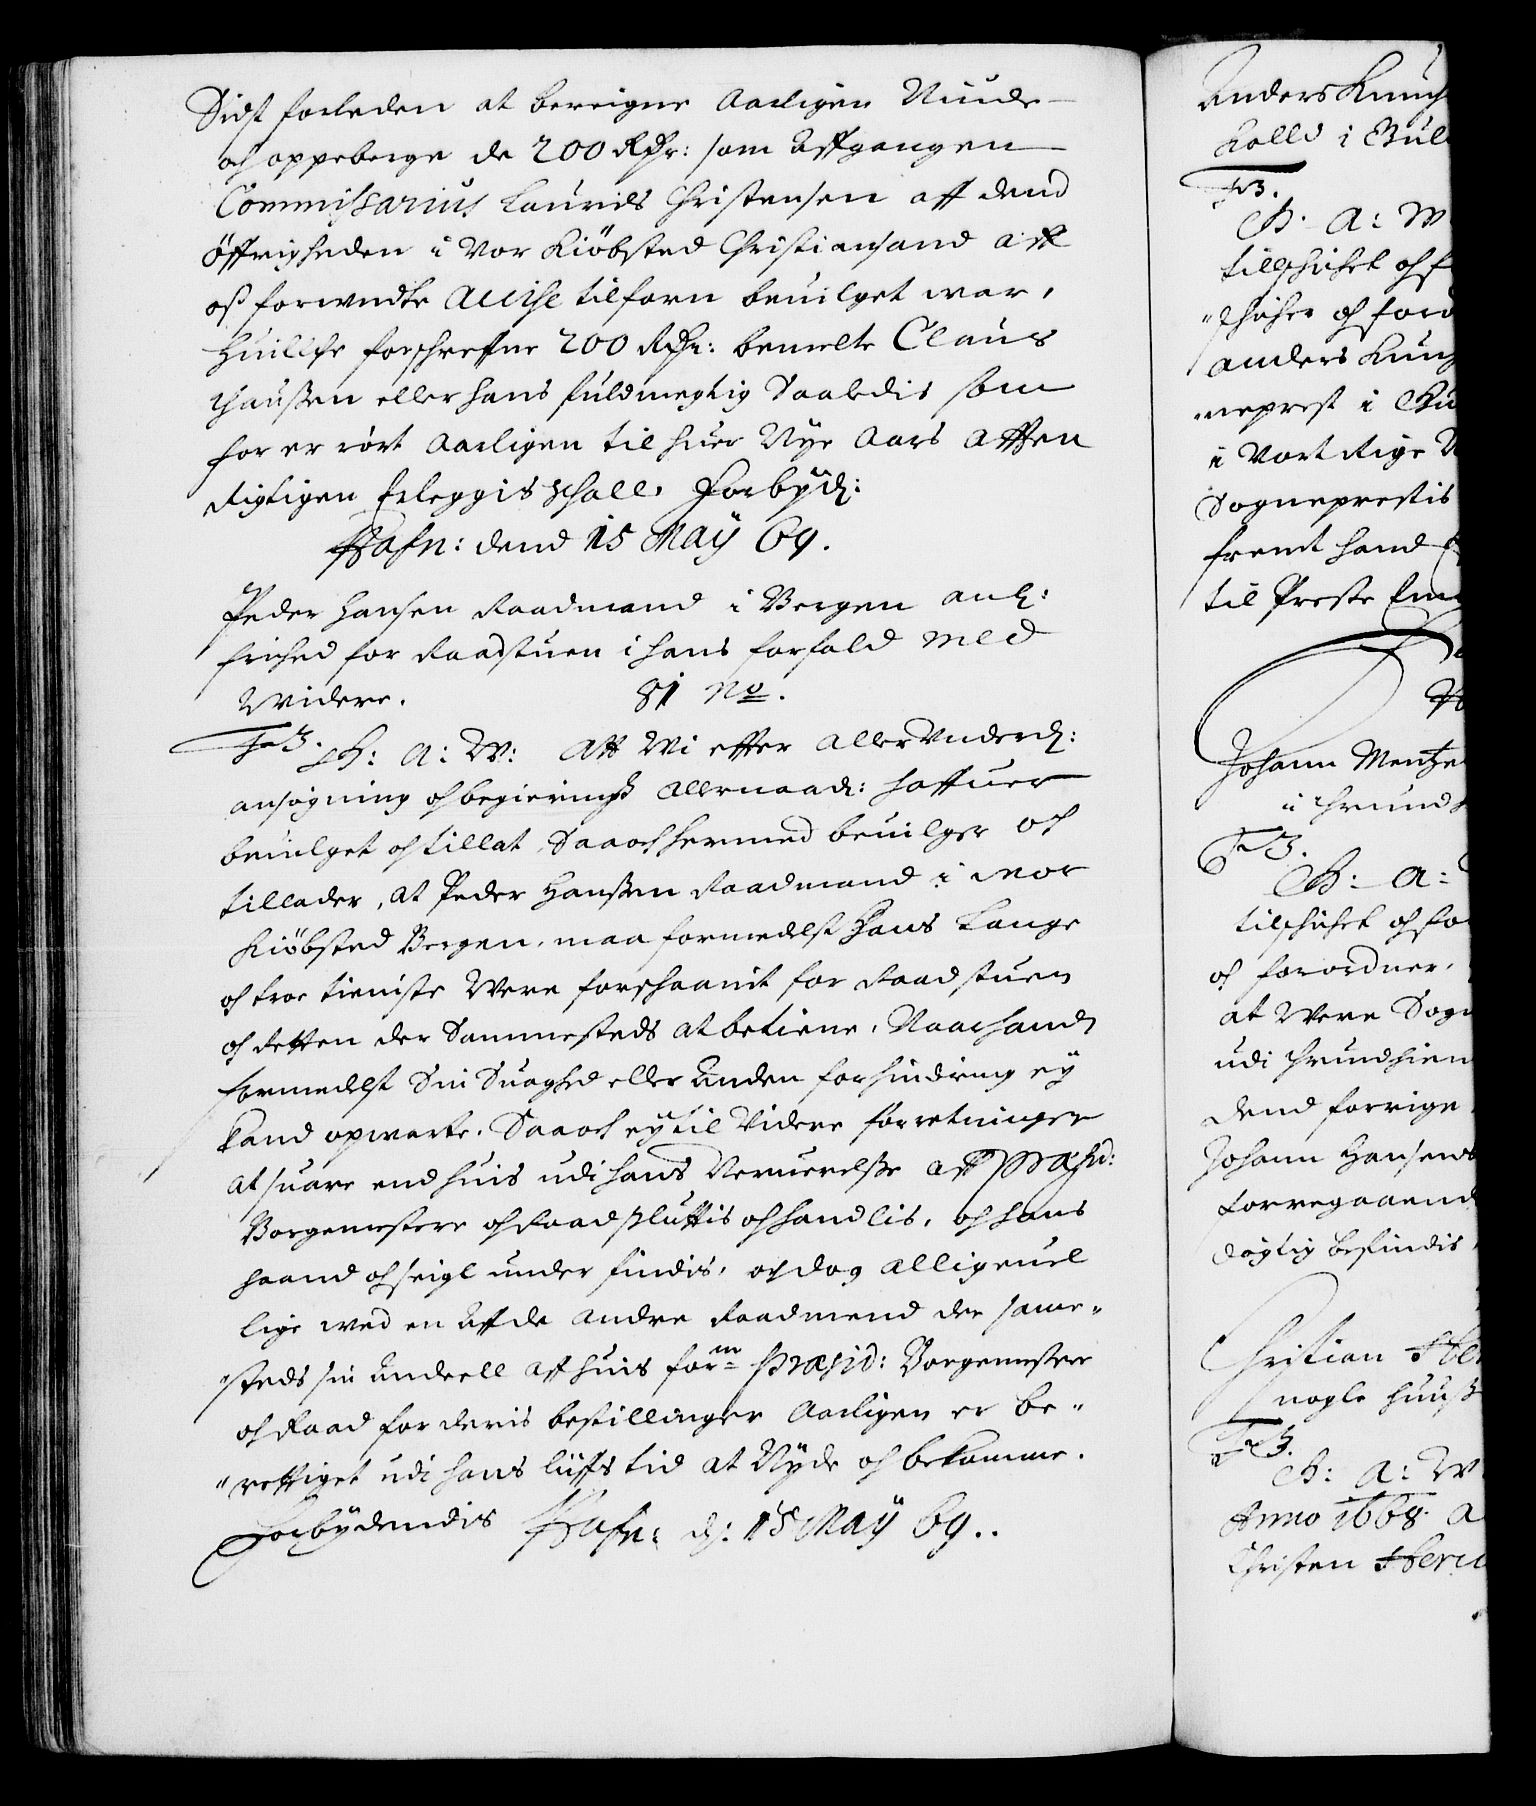 Sidst forleden at beregne Aarligen Niude
och oppeberge de 200 Rdr: som Affgangen
Commissarius Laurids Christensen aff dend
Øffrigheden i Vor Kiöbsted Christiansand aff
oss forundte Accise tilforn beuilget war,
Huilche forschreffne 200 Rdr: bemelte Claus
Hanssen eller hans fuldmegtig Saaledis som
for er rört Aarligen til huer Nye Aars Afften
Rigtigen Erleggis schall. Forbyd:
Hafn: dend 15 Maÿ 69.
Peder Hansen Raadmand i Bergen anl:
frihed for Raadstuen i hans forfald med
Widere. 81 No.
F3. G: A: W: Att Wi effter Allerunderd:
ansögning och begiering Allernaad: haffuer
beuilget och tillat, Saa och hermed beuilger och
tillader, at Peder Hanssen Raadmand i vor
Kiöbsted Bergen, maa formedelst Hans Lange
och troe tieniste Were forschaanit for Raadstuen
och Retten der Sammesteds at betiene, Naar hand
formedelst Sin Suaghed eller Anden forhindring ey
kand opwarte. Saa och ey til Videre forretninger
at suare end huis udi hans Neruerelsse aff Præsid:
Borgemestere och Raad sluttis och handlis, och hans
haand och seigl under findis, och dog alligeuel
lige wed en Aff de andre Raadmend der samme„
„steds sin andeell aff huis form Præsid: Borgemester
och Raad for deris bestillinger Aarligen er be„
„rettiget udi hans liiffs tid at Nyde och bekomme.
Forbydendis Hafn: d: 15 Maÿ 69..
Anders
holld i
F3.
G: A: W
tillschichet och
och ford
anders
„neprest i
i Vort Rige
Sogneprestis
fremt hand
til Preste
Johann Mentze
i
F3.
G: A:
tilschichet och
och forordner,
at Were Sogn
udi
Dend forrige
Johann Hansens
forregaaend
döchtig befindis
Christian
nogle
F3.
G: A: W
Anno 1668. A
Christen